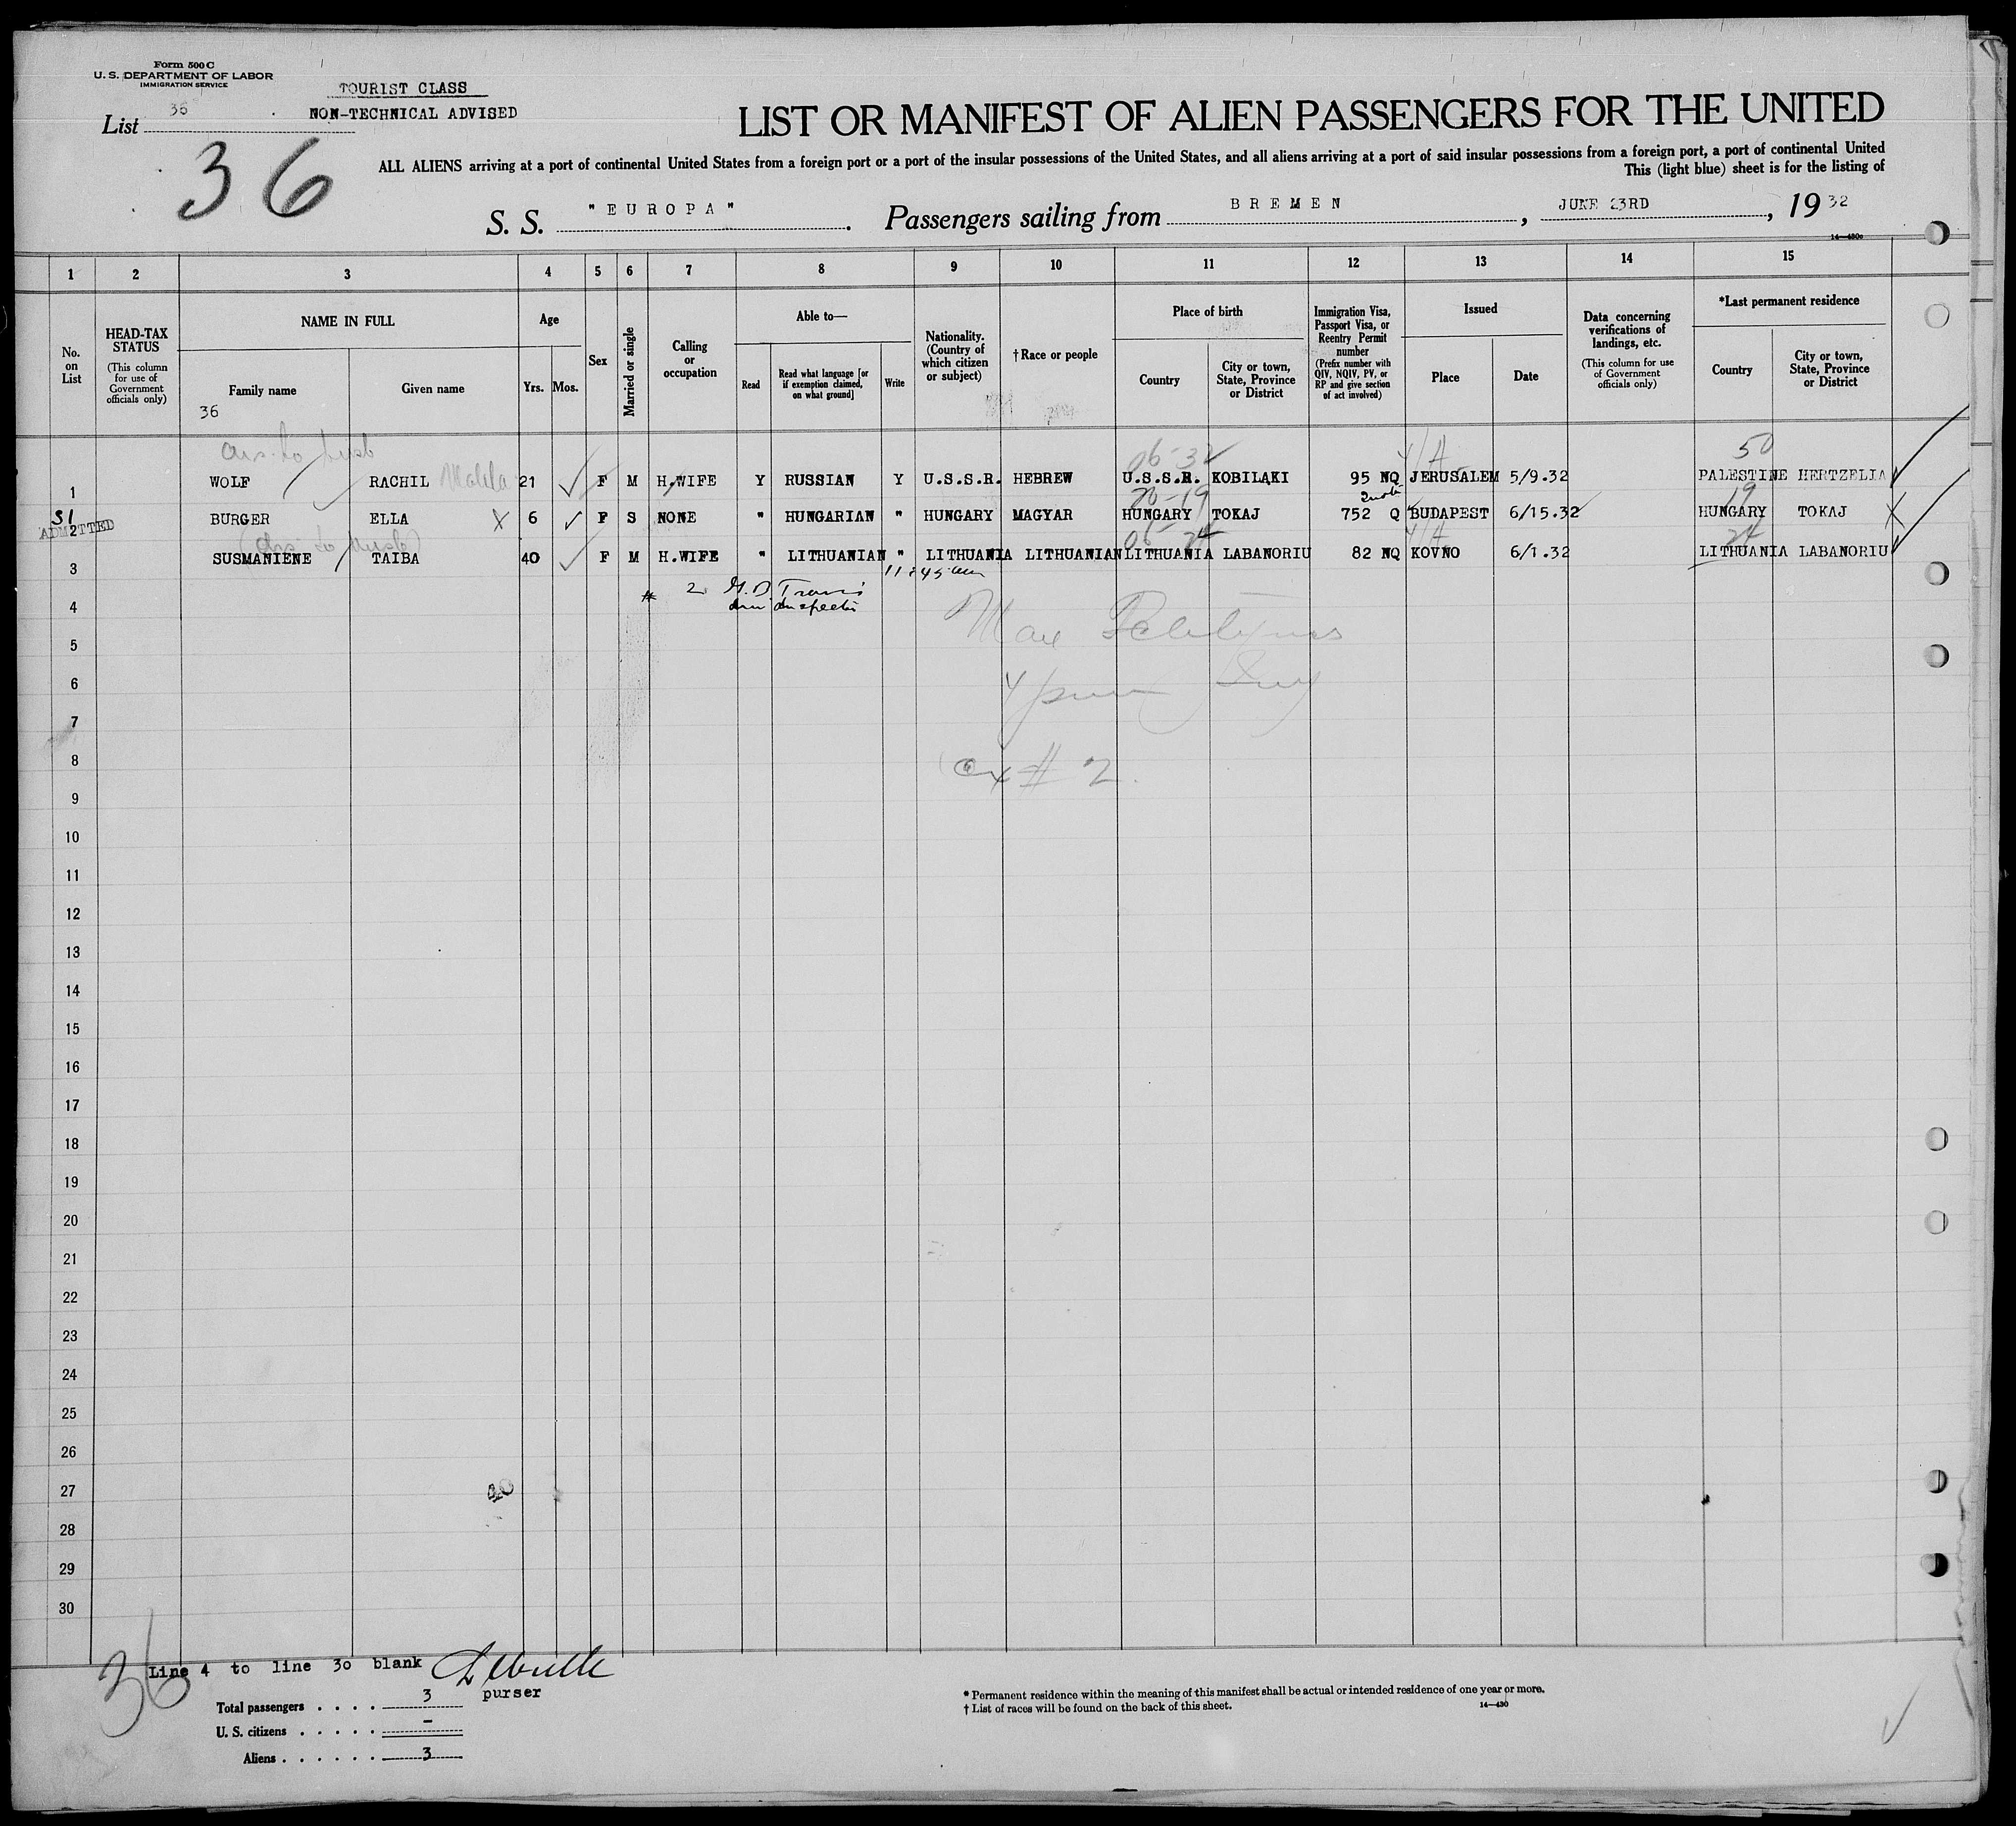 Form 500 C
U. S. DEPARTMENT OF LABOR
IMMIGRATION SERVICE
TOURIST CLASS
NON-TECHNICAL ADVISED
List 36
36
LIST OR MANIFEST OF ALIEN PASSENGERS FOR THE UNITED
ALL ALIENS arriving at a port of continental United States from a foreign port or a port of the insular possessions of the United States, and all aliens arriving at a port of said insular possessions from a foreign port, a port of continental United
This (light blue) sheet is for the listing of
S. S. "EUROPA". Passengers sailing from BREMEN, JUNE 23RD, 1932
14—430c
1 2 3 4 5 6 7 8 9 10 11 12 13 14 15
No. on List
HEAD-TAX STATUS
(This column for use of Government officials only)
NAME IN FULL
Family name
Given name
36
Age
Yrs. Mos.
Sex
Married or single
Calling or occupation
Able to—
Read
Read what language [or if exemption claimed, on what ground]
Write
Nationality. (Country of which citizen or subject)
†Race or people
Place of birth
Country
City or town, State, Province or District
Immigration Visa, Passport Visa, or Reentry Permit number
(Prefix number with QIV, NQIV, PV, or RP and give section of act involved)
Issued
Place
Date
Data concerning verifications of landings, etc.
(This column for use of Government officials only)
*Last permanent residence
Country
City or town, State, Province or District
06-32 4/A 50
1 WOLF RACHIL 21 F M H.WIFE Y RUSSIAN Y U.S.S.R. HEBREW U.S.S.R. KOBILAKI 95 NQ JERUSALEM 5/9.32 PALESTINE HERTZELIA
SI
ADMITTED
19
2 BURGER ELLA X 6 F S NONE " HUNGARIAN " HUNGARY MAGYAR HUNGARY TOKAJ 752 Q BUDAPEST 6/15.32 HUNGARY TOKAJ X
4/A 24
3 SUSMANIENE TAIBA 40 F M H.WIFE " LITHUANIAN " LITHUANIA LITHUANIAN LITHUANIA LABANORIU 82 NQ KOVNO 6/1.32 LITHUANIA LABANORIU
11:45 am
# 2
4
5
6
7
8
# 2
9
10
11
12
13
14
15
16
17
18
19
20
21
22
23
24
25
26
27
28
29
30
36
Line 4 to line 30 blank
purser
Total passengers . . . . 3
U. S. citizens . . . . . –
Aliens . . . . . . 3
* Permanent residence within the meaning of this manifest shall be actual or intended residence of one year or more.
† List of races will be found on the back of this sheet.
14—430